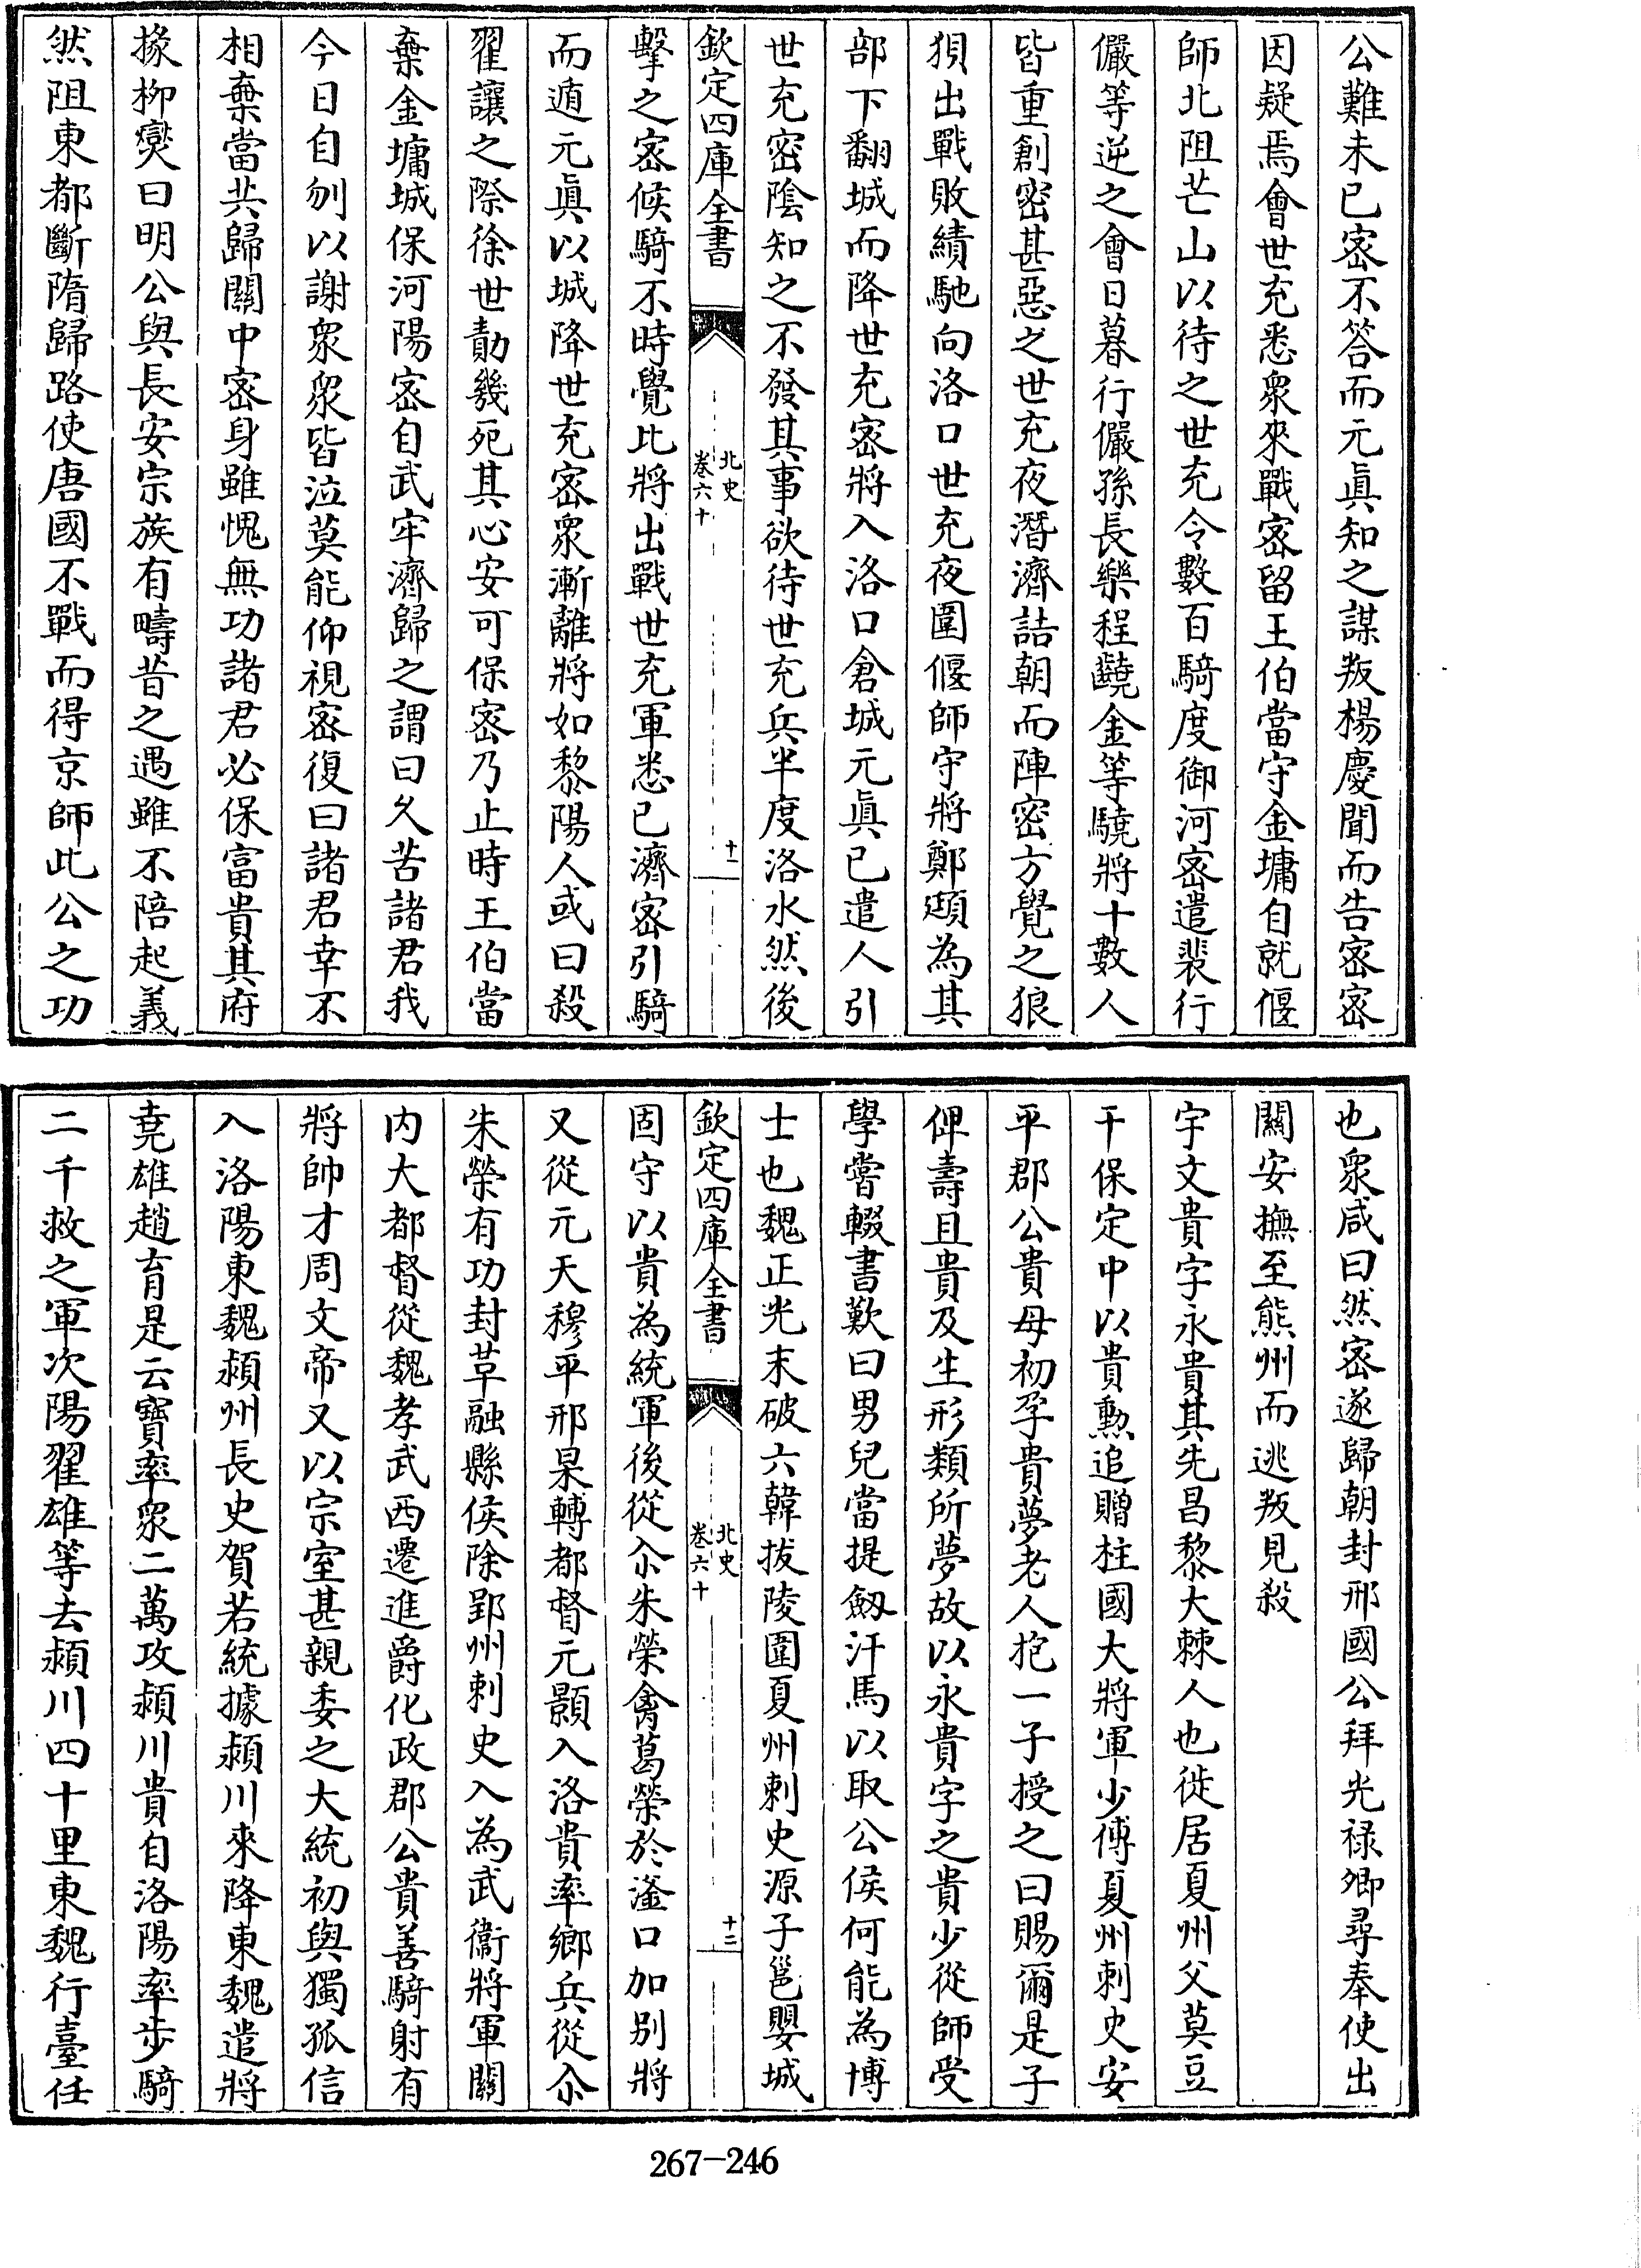 公難未已密不答而元真知之謀叛楊慶聞而告密密
因疑焉會世充悉衆來戰密留王伯當守金墉自就偃
師北阻芒山以待之世充令數百騎度御河密遣裴行
儼等逆之會日暮行儼孫長樂程䶒金等驍將十數人
皆重創密甚惡之世充夜潛濟詰朝而陣密方覺之狼
狽出戰敗績馳向洛口世充夜圍偃師守將鄭頲為其
部下翻城而降世充密將入洛口倉城元真已遣人引
世充密陰知之不發其事欲待世充兵半度洛水然後
欽定四庫全書
北史
卷六十
十一
擊之密候騎不時覺比將出戰世充軍悉已濟密引騎
而遁元真以城降世充密衆漸離將如黎陽人或曰殺
翟讓之際徐世勣幾死其心安可保密乃止時王伯當
棄金墉城保河陽密自武牢濟歸之謂曰久苦諸君我
今日自刎以謝衆衆皆泣莫能仰視密復曰諸君幸不
相棄當共歸關中密身雖愧無功諸君必保富貴其府
掾柳爕曰明公與長安宗族有疇昔之遇雖不陪起義
然阻東都斷隋歸路使唐國不戰而得京師此公之功
也衆咸曰然密遂歸朝封邢國公拜光禄卿尋奉使出
關安撫至熊州而逃叛見殺
宇文貴字永貴其先昌黎大棘人也徙居夏州父莫豆
干保定中以貴勲追贈柱國大將軍少傅夏州刺史安
平郡公貴母初孕貴夢老人抱一子授之曰賜爾是子
俾壽且貴及生形類所夢故以永貴字之貴少從師受
學嘗輟書歎曰男兒當提劔汗馬以取公侯何能為博
士也魏正光末破六韓拔陵圍夏州刺史源子邕嬰城
欽定四庫全書
北史
卷六十
十二
固守以貴為統軍後從尒朱榮禽葛榮於滏口加别將
又從元天穆平邢杲轉都督元顥入洛貴率鄉兵從尒
朱榮有功封革融縣侯除郢州刺史入為武衞將軍關
内大都督從魏孝武西遷進爵化政郡公貴善騎射有
將帥才周文帝又以宗室甚親委之大統初與獨孤信
入洛陽東魏潁州長史賀若統據潁川來降東魏遣將
堯雄趙育是云寶率衆二萬攻潁川貴自洛陽率步騎
二千救之軍次陽翟雄等去潁川四十里東魏行臺任
267-246